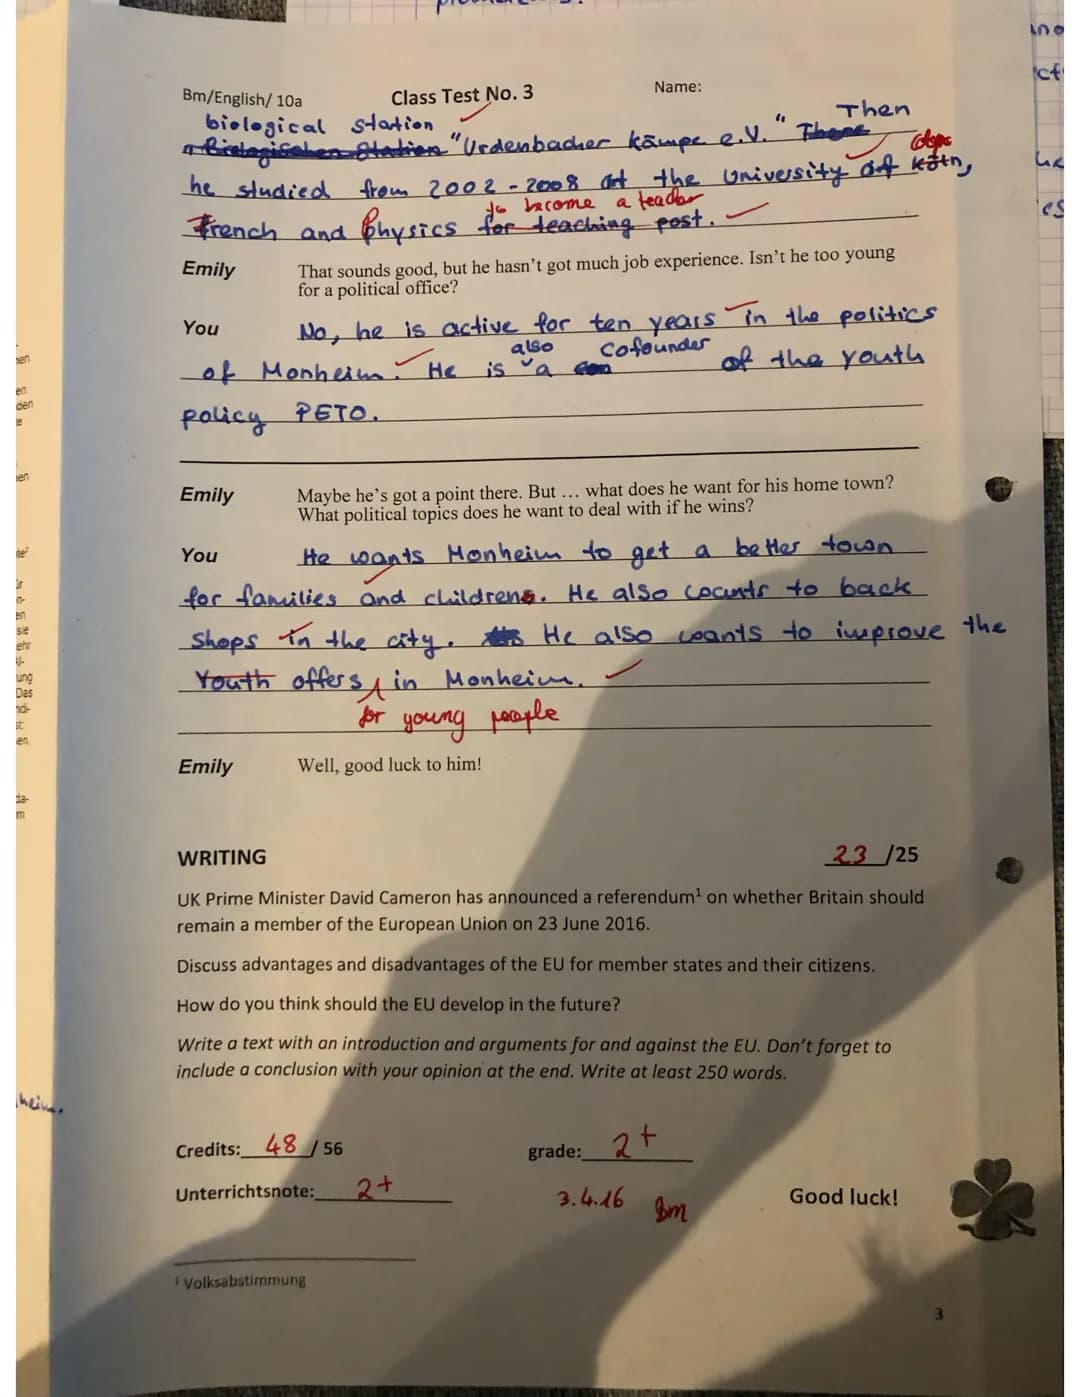 Bm/English/ 10a Class Test No. 3 Name:
biological station Then
Biologischen Station "Urdenbacher kämpe e.V." There
he studied from 2002 - 2008 at the University of Köln,
to become a teacher
French and Physics for teaching post.
Emily That sounds good, but he hasn't got much job experience. Isn't he too young
for a political office?
You No, he is active for ten years in the politics
also Cofounder
of Monheim. He is a of the youth
policy PETO.
Emily Maybe he's got a point there. But ... what does he want for his home town?
What political topics does he want to deal with if he wins?
You He wants Monheim to get a better town
for families and childrens. He also wants to back
shops in the city. He also wants to improve the
Youth offers in Monheim.
for young people
Emily Well, good luck to him!
WRITING 23 /25
UK Prime Minister David Cameron has announced a referendum¹ on whether Britain should
remain a member of the European Union on 23 June 2016.
Discuss advantages and disadvantages of the EU for member states and their citizens.
How do you think should the EU develop in the future?
Write a text with an introduction and arguments for and against the EU. Don't forget to
include a conclusion with your opinion at the end. Write at least 250 words.
Credits: 48 / 56 grade: 2+
Unterrichtsnote: 2+ 3.4.16 Bm Good luck!
¹ Volksabstimmung
3